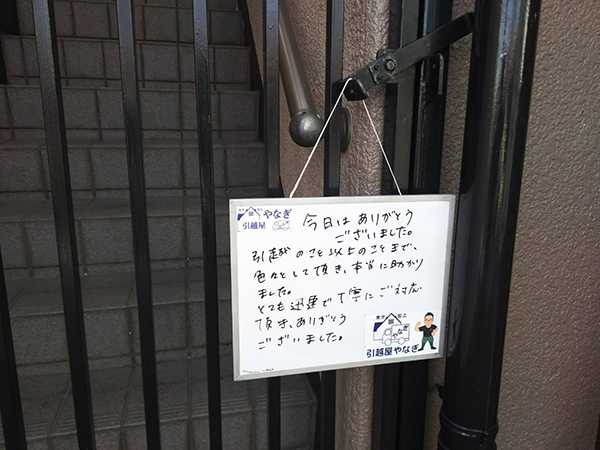 やなぎ
引越屋
今日は ありがとう
ございました。
引越のこと以上のことまで、
色々として頂き、本当に助かり
ました。
とても迅速で丁寧にご対応
頂き、ありがとう
ございました。
東京 国立
やなぎ
引越屋やなぎ